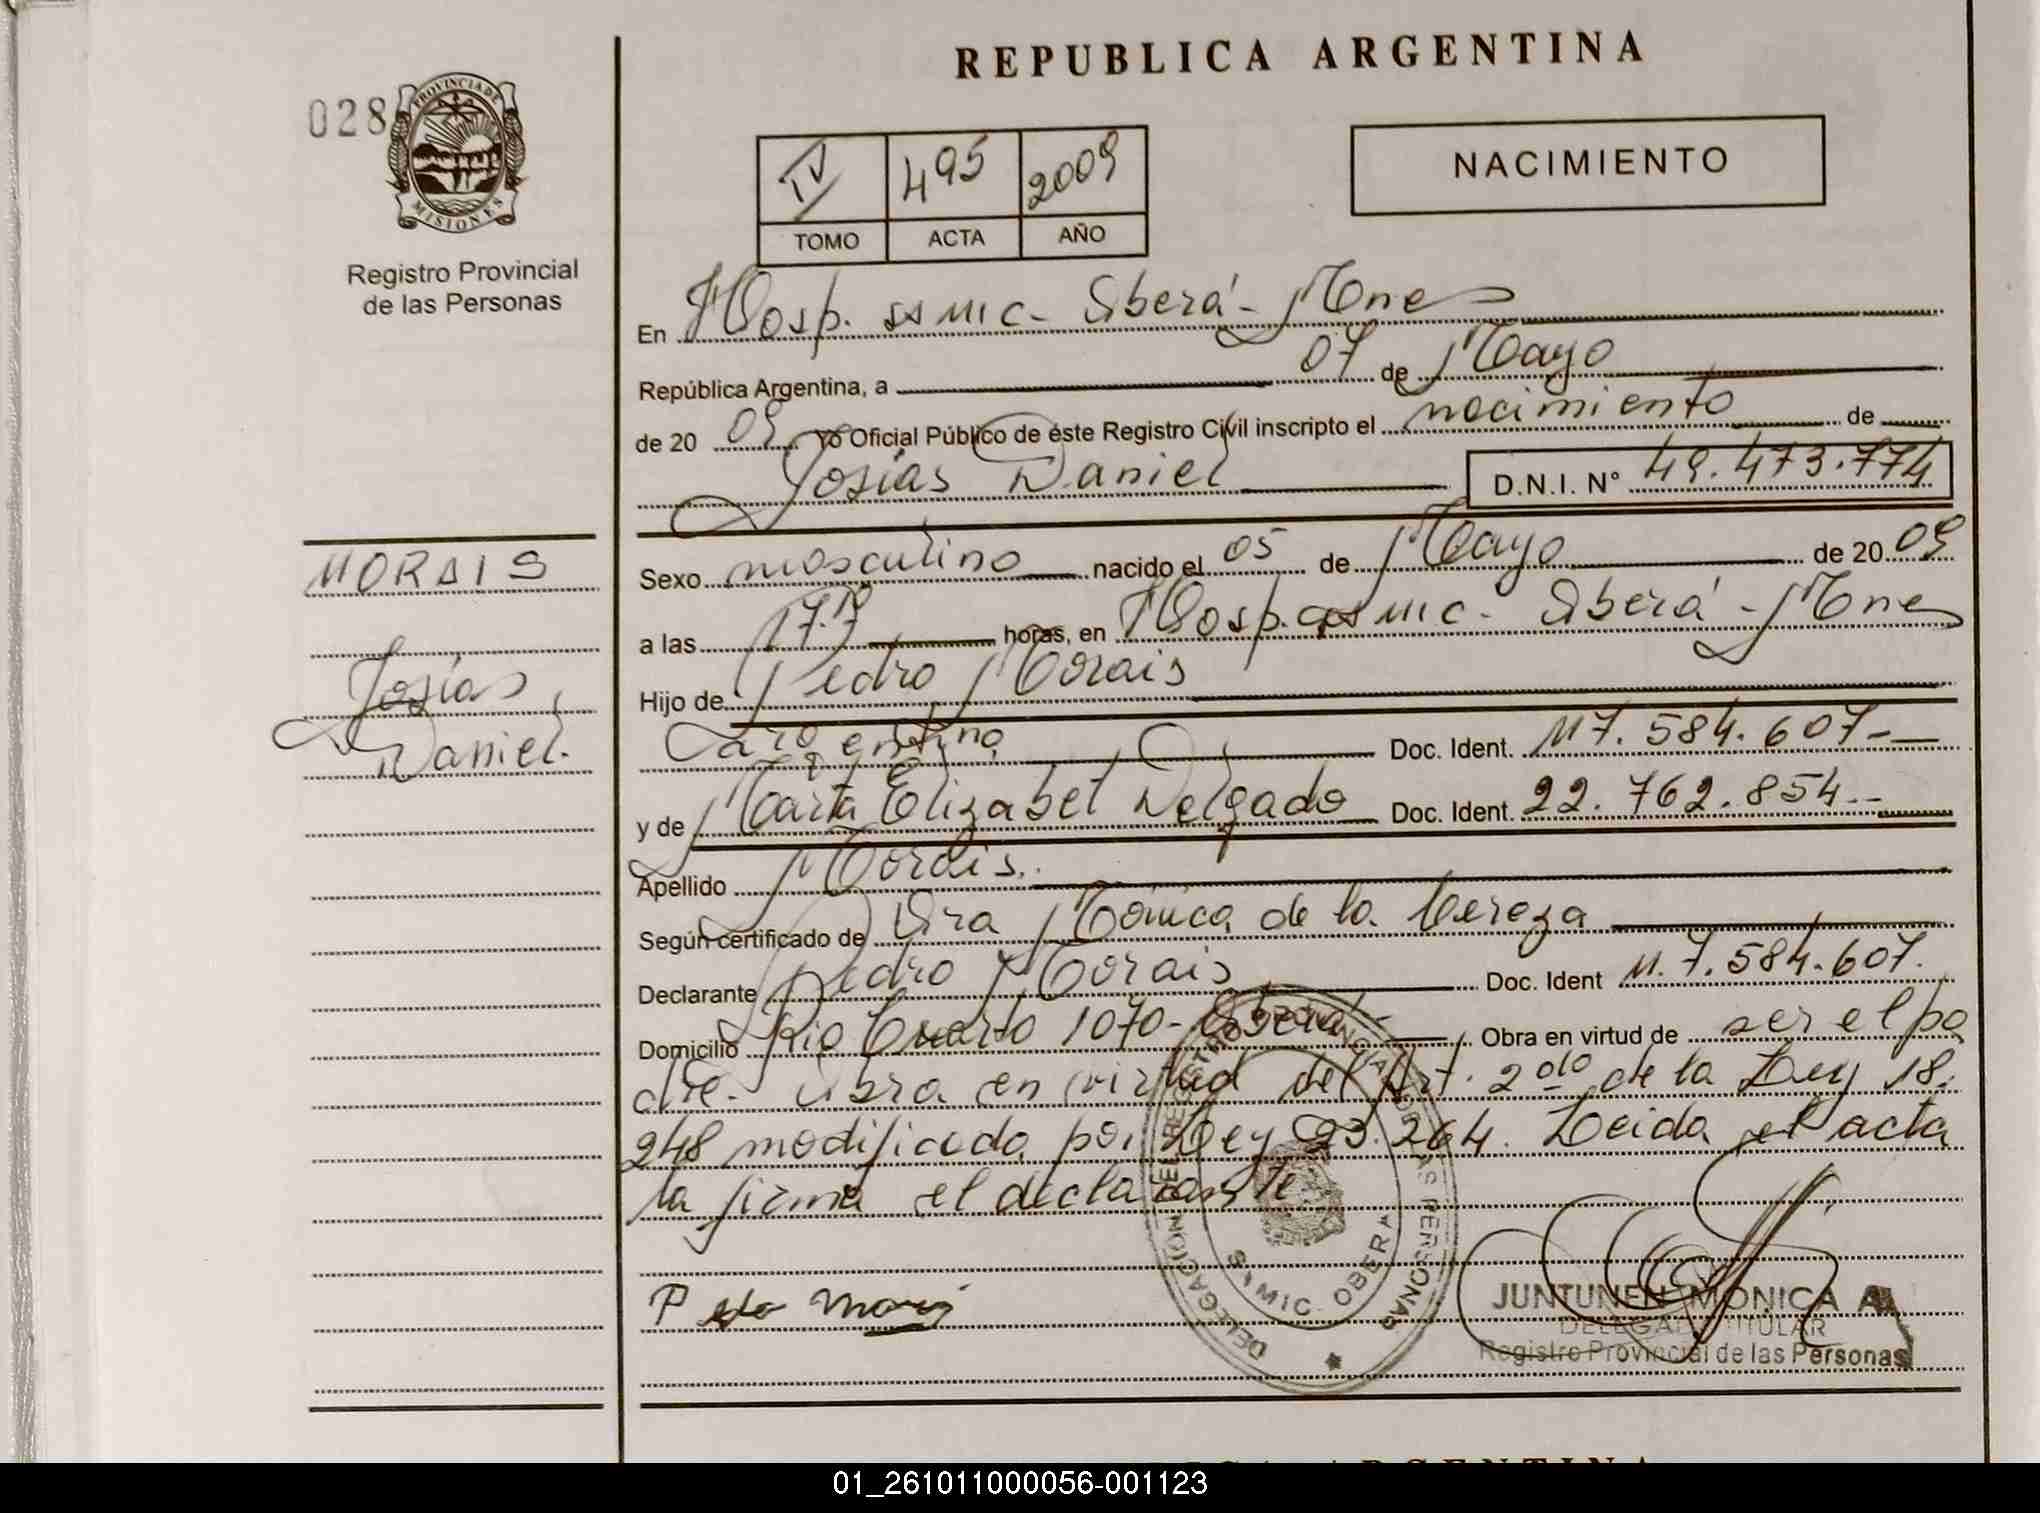 REPUBLICA ARGENTINA
028
PROVINCIA DE
MISIONES
Registro Provincial
de las Personas
IV 495 2009
TOMO ACTA AÑO
NACIMIENTO
En Hosp. SAMIC - Oberá - Mnes
República Argentina, a 07 de Mayo
de 20 09 Yo Oficial Público de éste Registro Civil inscripto el nacimiento de
Josías Daniel D.N.I. N° 49.473.774
MORAIS
Josías
Daniel.
Sexo masculino nacido el 05 de Mayo de 20 09
a las horas, en Hosp. SAMIC - Oberá - Mnes
Hijo de Pedro Morais
argentino Doc. Ident. M7.584.607--
y de Marta Elizabet Delgado Doc. Ident. 22.762.854--
Apellido Morais.
Según certificado de Dra Mónica de la Cereza
Declarante Pedro Morais Doc. Ident M.7.584.607.
Domicilio Rio Cuarto 1070 - Oberá - Obra en virtud de ser el pa
dre. Obra en virtud del Art. 2do de la Ley 18.
248 modificada por Ley 23.264. Leida el acta
la firma el declarante
DELEGACION DEL REGISTRO PROVINCIAL DE LAS PERSONAS
S.A.MIC. OBERA
JUNTUNEN MONICA A.
DELEGADA TITULAR
Registro Provincial de las Personas
01_261011000056-001123